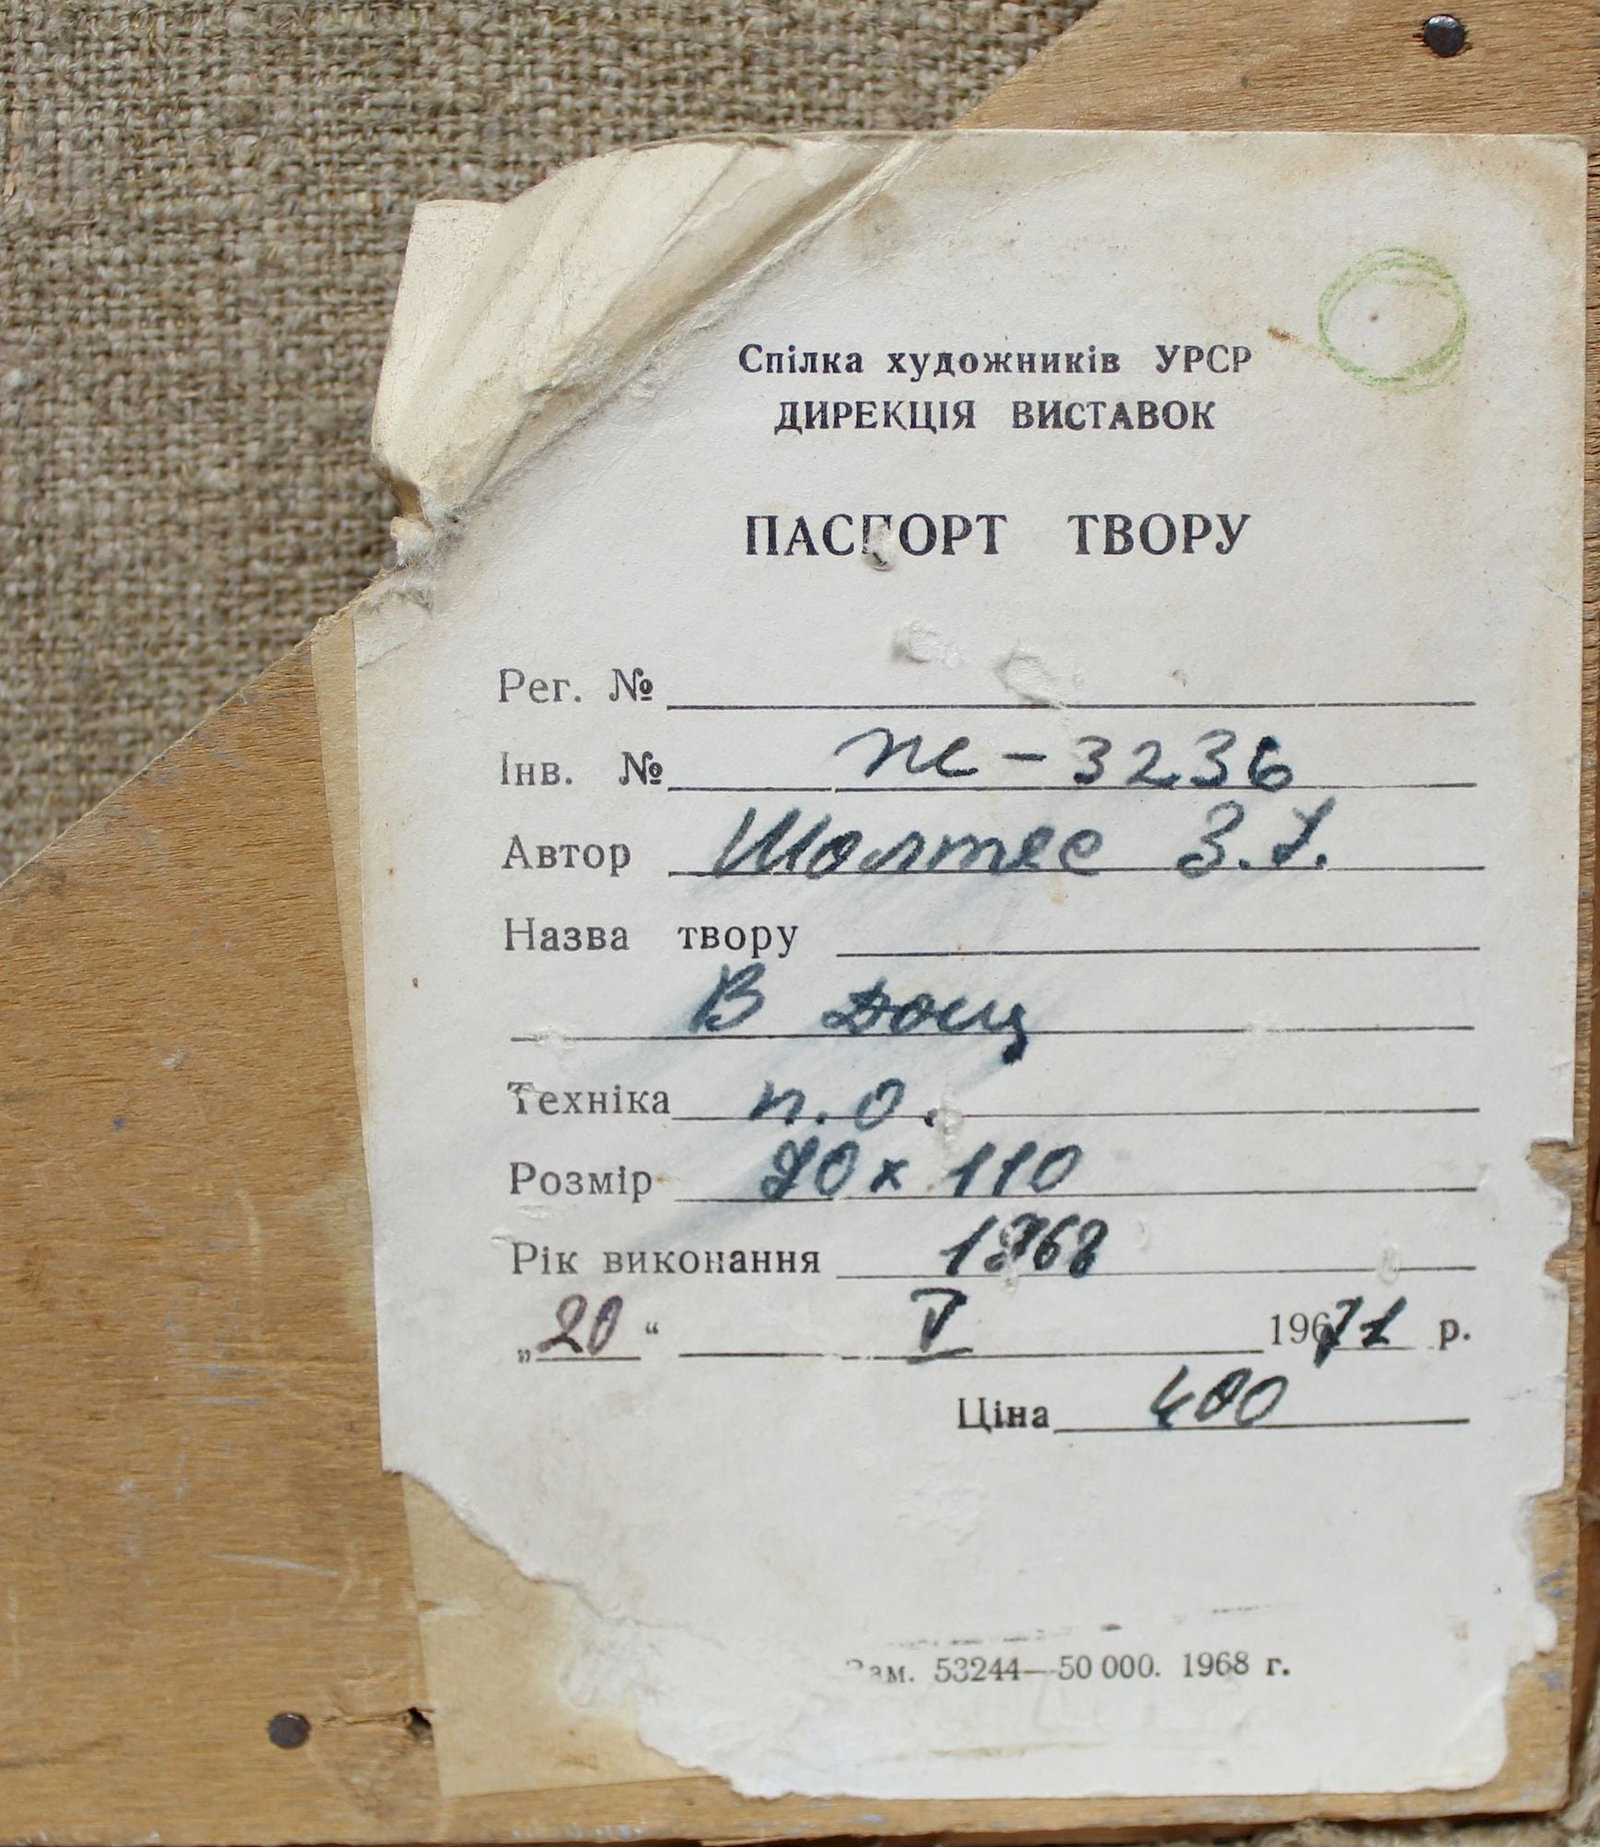 Спілка художників УРСР
ДИРЕКЦІЯ ВИСТАВОК
ПАСПОРТ ТВОРУ
Рег. №
Інв. № жс - 3236
Автор Шолтес З.І.
Назва твору
В дощ
Техніка п.о.
Розмір 90 х 110
Рік виконання 1968
„20“ V 1971 р.
Ціна 400
Зам. 53244—50 000. 1968 г.